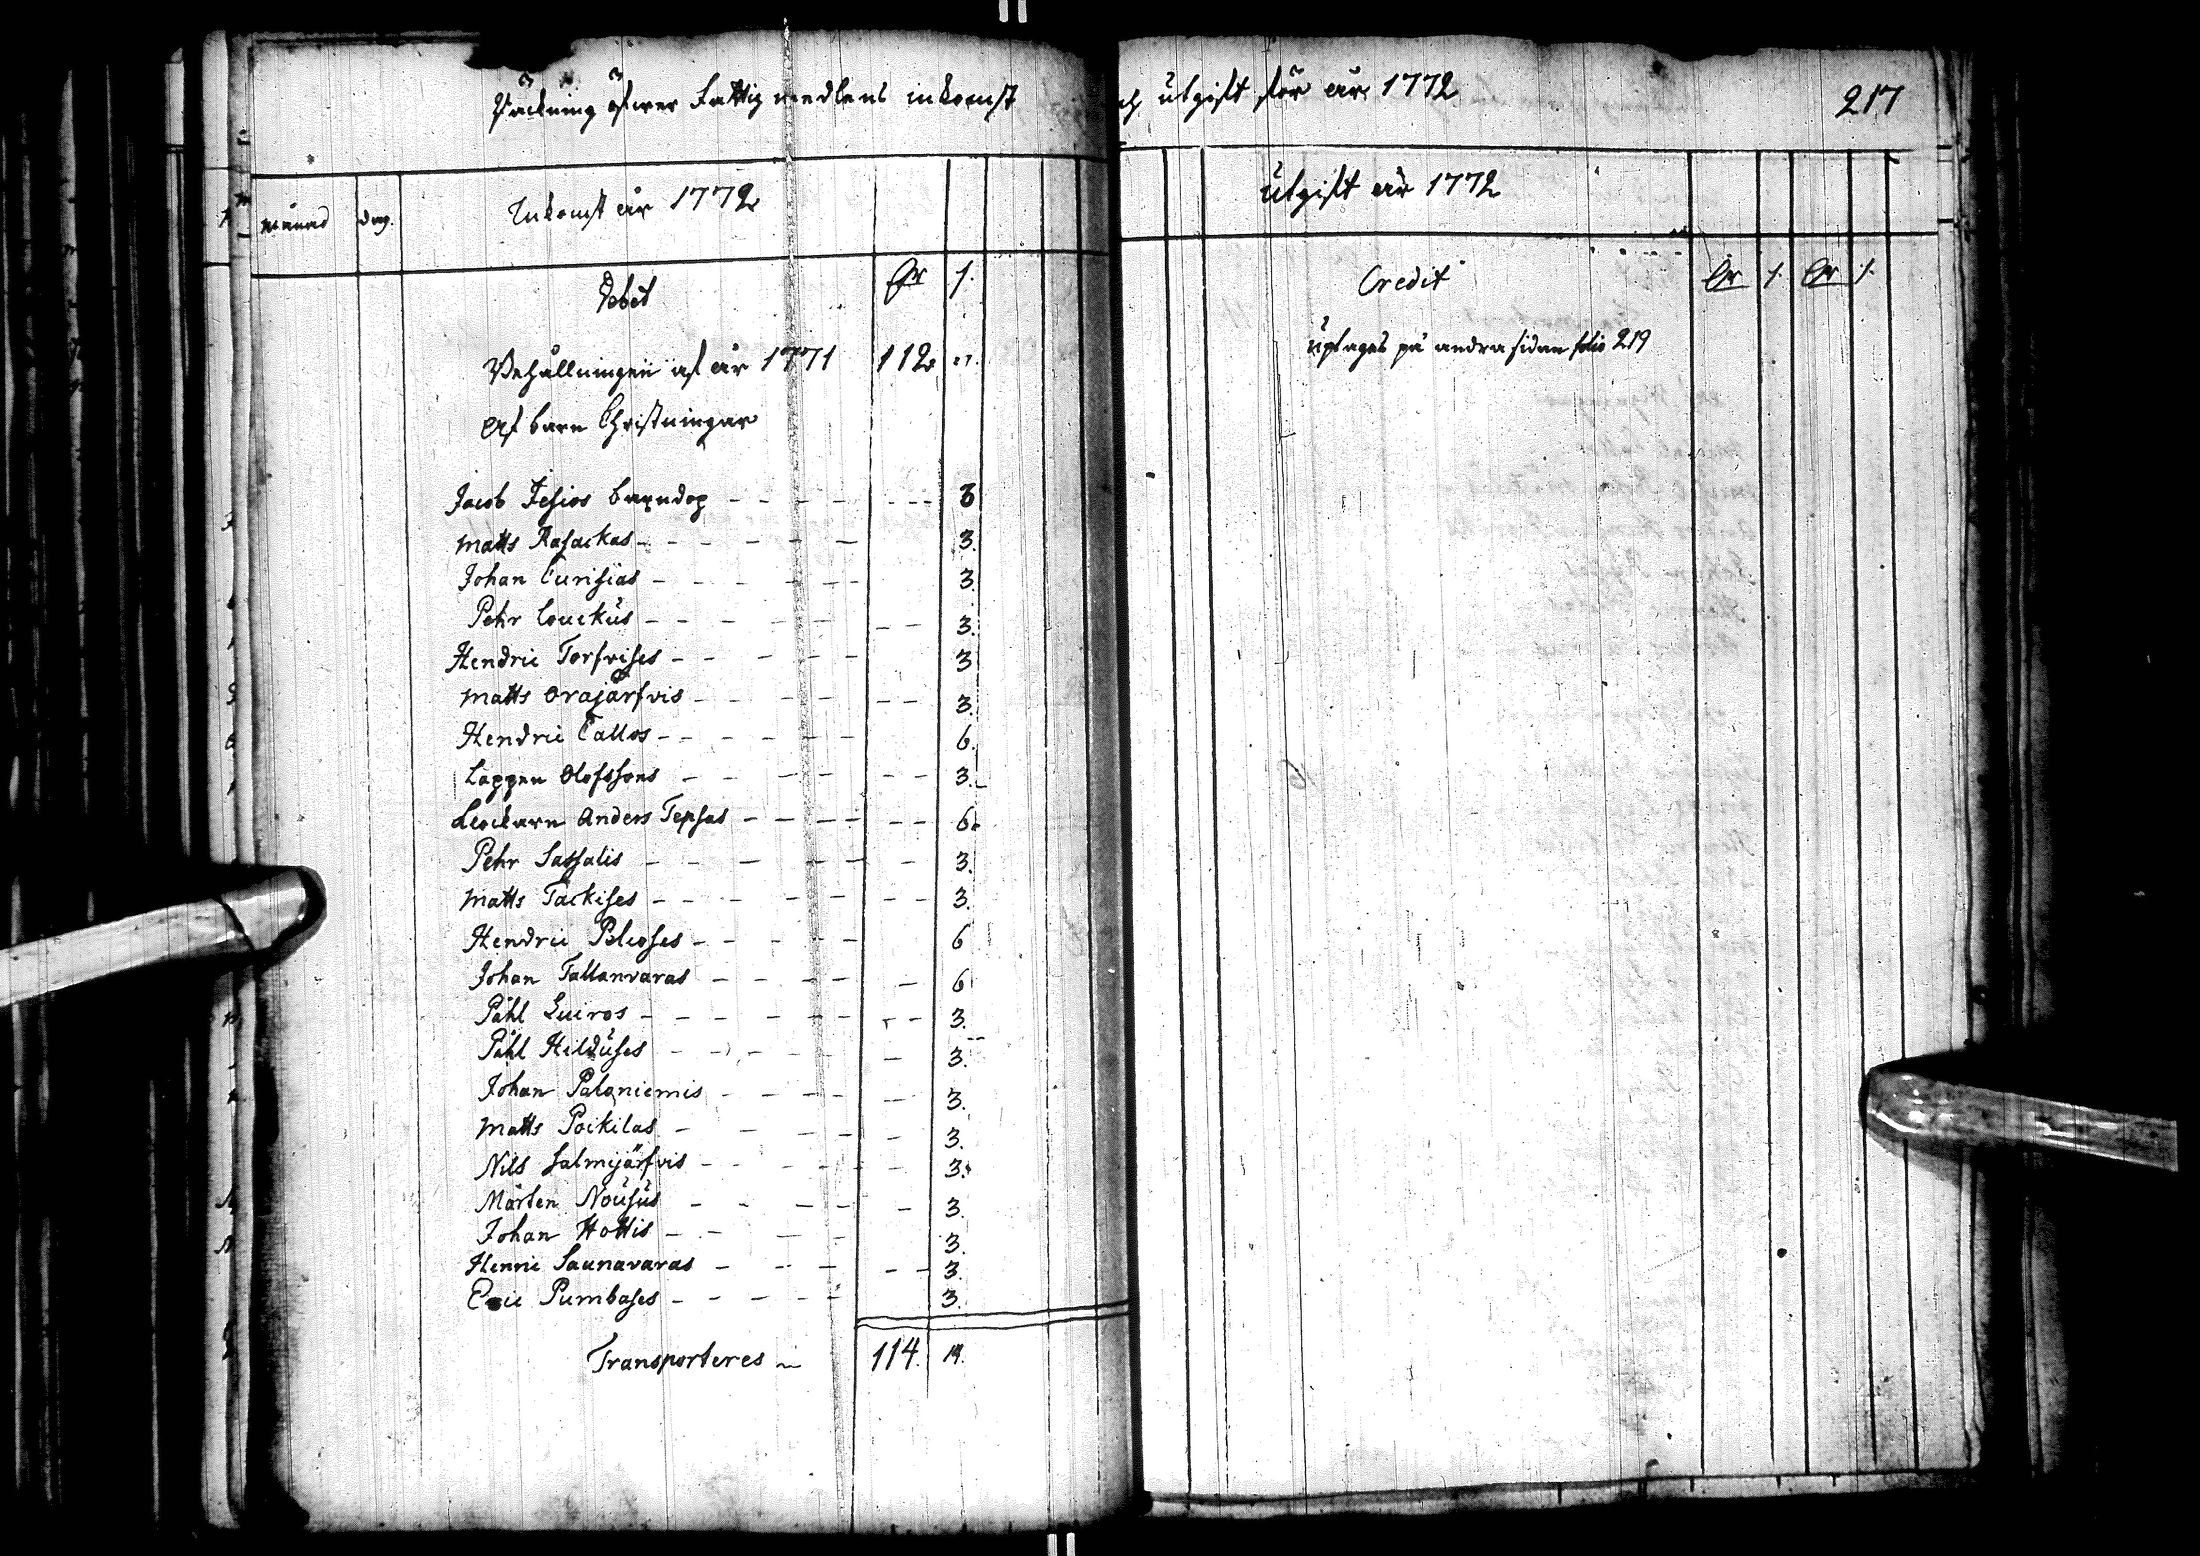 Räckning öfwer Fattig medlens inkomst och utgift för år 1772
217
månad dag. Inkomst år 1772
Debet
Behållningen af år 1771 112
Af barn Christningar
Jacob Jesios barndop - - - 3
Matts Rasackas - - - 3.
Johan Curisias - - - 3.
Pehr Couckus - - - 3.
Hendric Torfvises - - - 3
Matts Orajärfvis - - - 3.
Hendric Callos - - - 6.
Lappen Olofssons - - - 3.
Klockarn Anders Tepsas - - - 6.
Pehr Sassalis - - - 3.
Matts Tackises - - - 3.
Hendric - - - 6
Johan Tallanvaras - - - 6
Påhl Luiros - - - 3.
Påhl Hilduses - - - 3.
Johan Palaniemis - - - 3.
Matts Poikilas - - - 3.
Nils Salmijärfvis - - - 3.
Mårten Nousus - - - 3.
Johan Hottis - - - 3.
Henric Saunavaras - - - 3.
Eric Pumbases - - - 3.
Transporteres 114. 14.
Utgift år 1772
Credit
Uptages på andra sidan folio 219